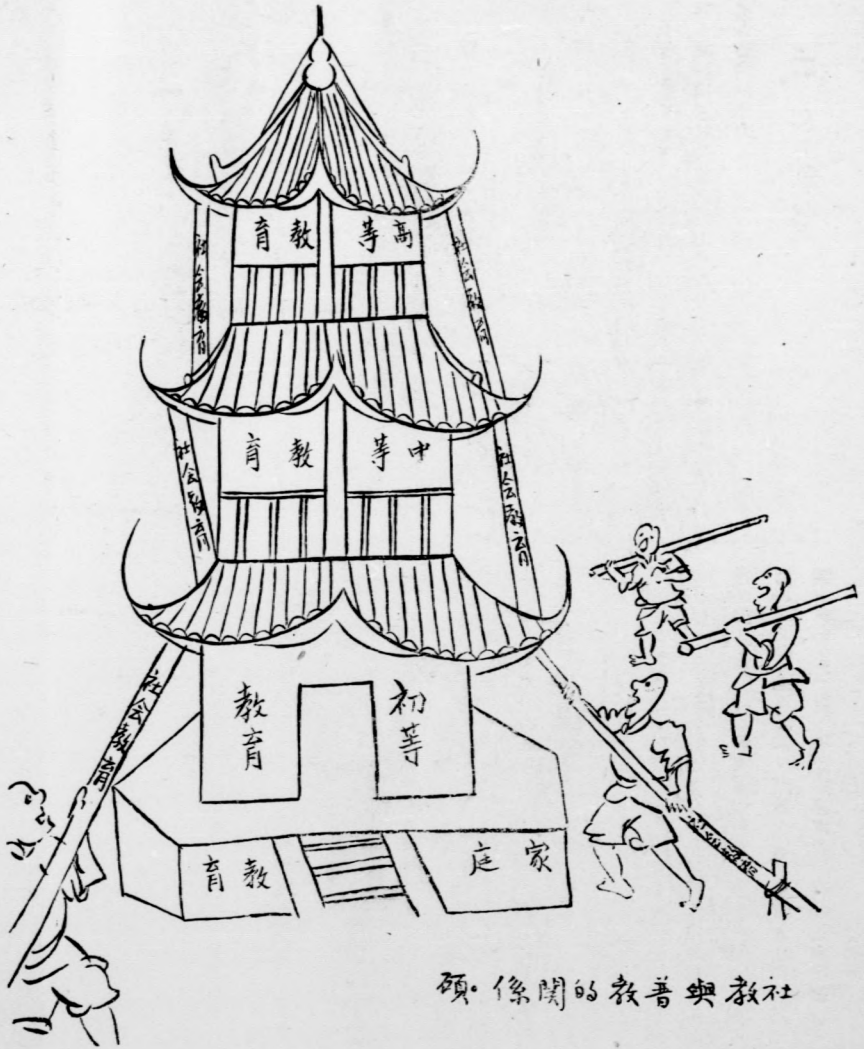 高等教育
社会教育
社会教育
中等教育
社会教育
社会教育
初等
教育
社会教育
家庭教育
社教與普教的関係